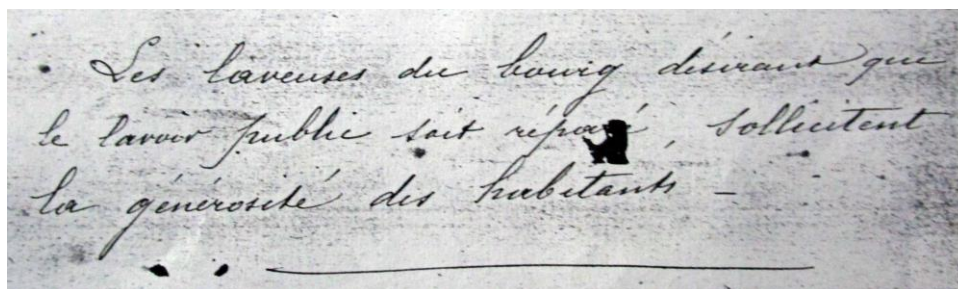 Les laveuses du bourg désirant que
le lavoir public soit réparé, sollicitent
la générosité des habitants -